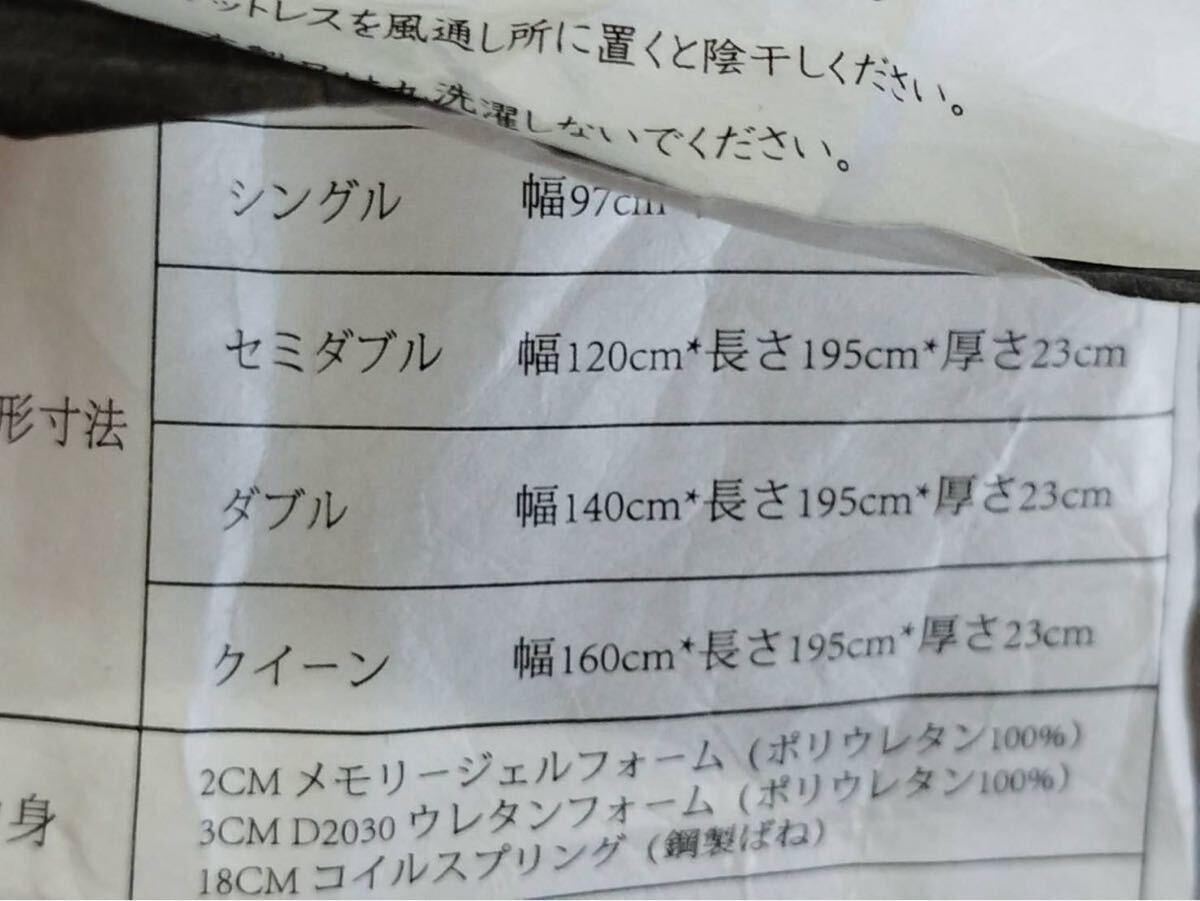 ットレスを風通し所に置くと陰干しください。
洗濯しないでください。
シングル 幅97cm
セミダブル 幅120cm*長さ195cm*厚さ23cm
形寸法
ダブル 幅140cm*長さ195cm*厚さ23cm
クイーン 幅160cm*長さ195cm*厚さ23cm
2CM メモリージェルフォーム (ポリウレタン100%)
身
3CM D2030 ウレタンフォーム (ポリウレタン100%)
18CM コイルスプリング (鋼製ばね)